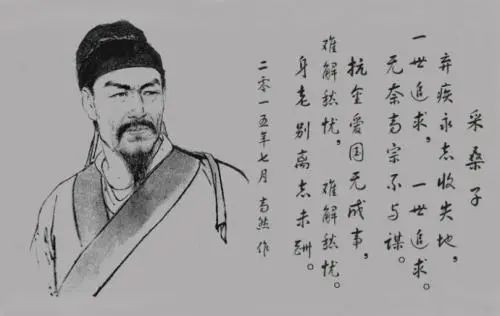 采桑子
弃疾永志收失地，
一世追求，一世追求。
无奈高宗不与谋。
抗金爱国无成事，
难解愁忧，难解愁忧。
身老别离志未酬。
二零一五年七月 高然作